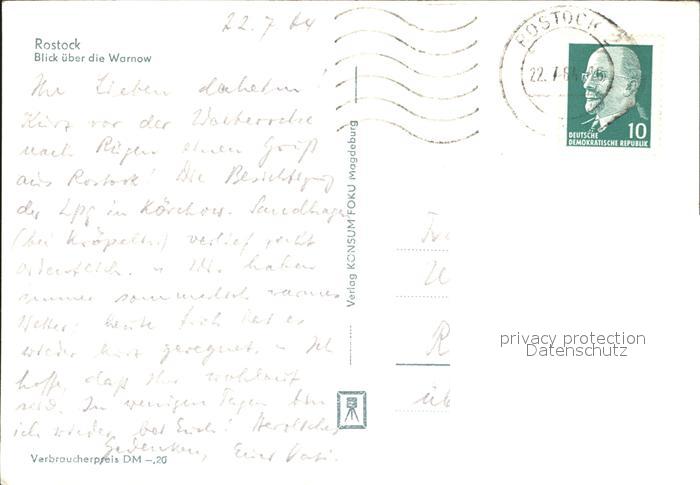 22.7.64
Rostock
Blick über die Warnow
Ihr Lieben daheim!
Kurz vor der Weiterreise
nach Rügen einen Gruß
aus Rostock! Die Besichtigung
der Lpg in Körchow. Sandhagen
(bei Kröpelin) verlief recht
ordentlich. Wir haben
immer sommerlich warmes
Wetter; heute früh hat es
wieder kurz geregnet. Ich
hoffe, daß Ihr wohlauf
seid. In wenigen Tagen bin
ich wieder bei Euch! Herzliches
Gedenken, Euer Vati.
Verbraucherpreis DM –,20
Verlag KONSUM FOKU Magdeburg
ROSTOCK
22.7.64
DEUTSCHE
DEMOKRATISCHE REPUBLIK
10
privacy protection
Datenschutz